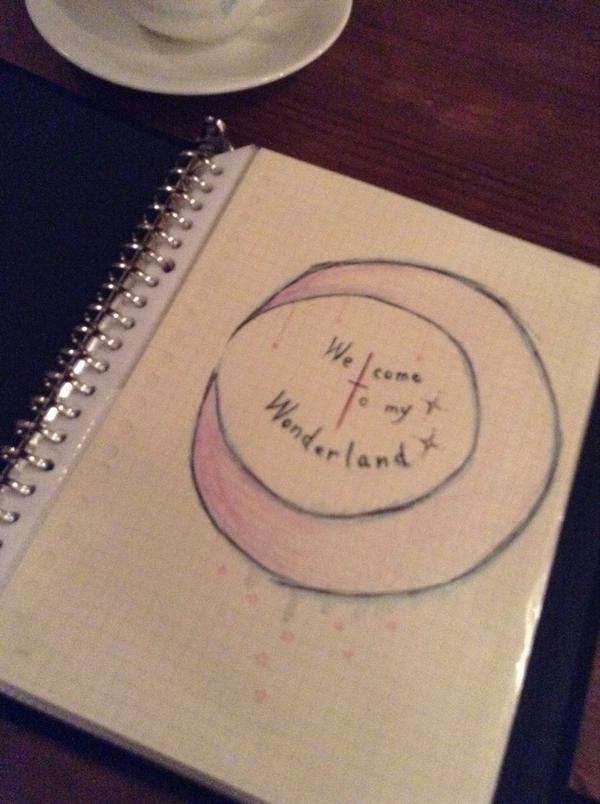 Welcome
to my
Wonderland